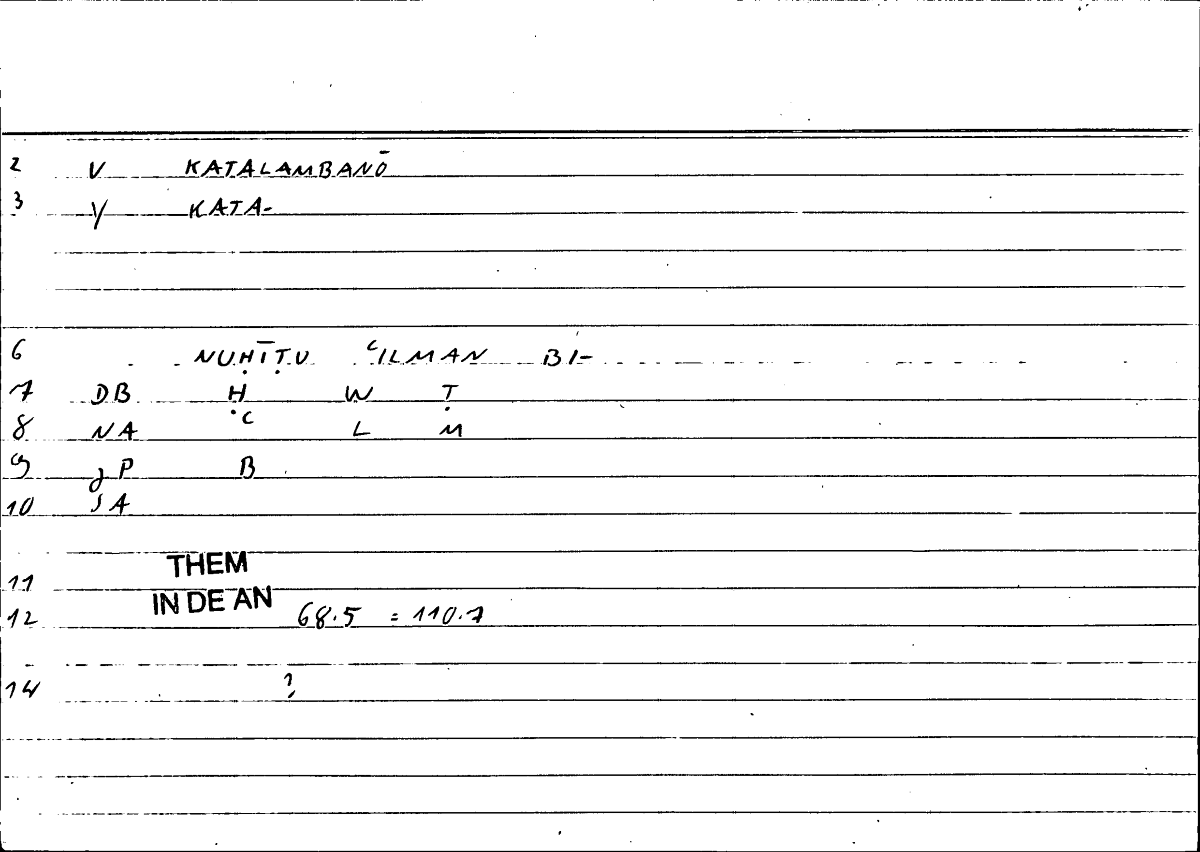 2 V KATALAMBANŌ
3 V KATA-
6 NUḤĪṬU ʿILMAN BI-
7 DB Ḥ W Ṭ
8 NA ʿ L M
9 gP B
10 SA
THEM
11
IN DE AN
12 68.5 = 110.7
14 ?